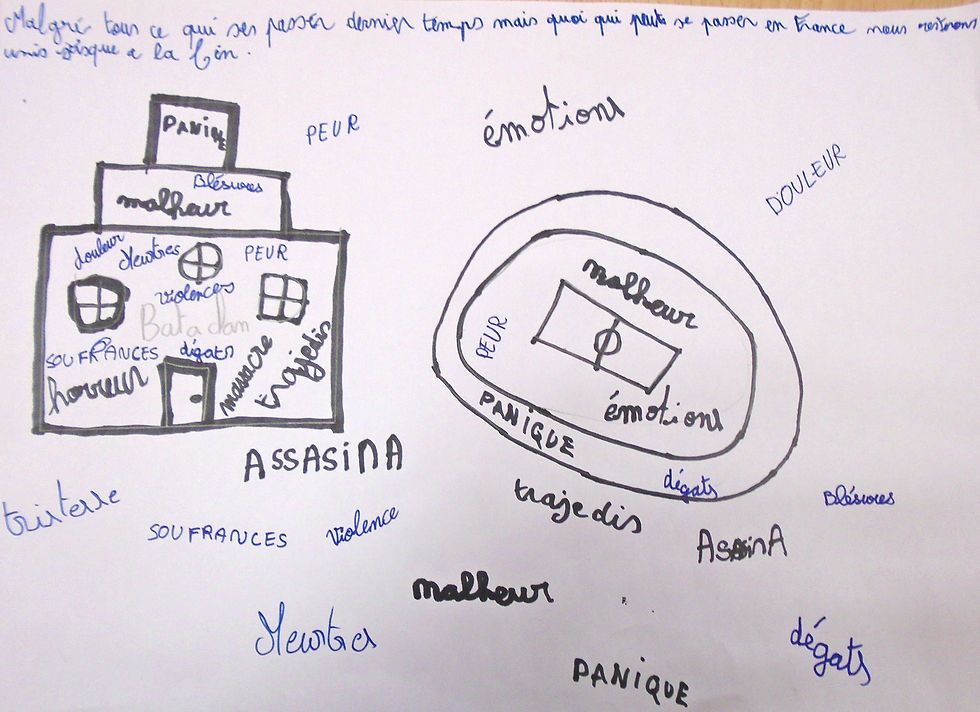 Malgré tous ce qui ses passer dernier temps mais quoi qui peuts se passer en France nous resterons
unis jusque a la fin.
PANIQUE
PEUR
émotions
Blésures
malheur
DOULEUR
douleur Meurtres PEUR
violences
Bataclan
SOUFRANCES dégats
horreur massacre trajedis
malheur
PEUR
émotions
PANIQUE
dégats
ASSASINA
tristesse
SOUFRANCES violence
trajedis
Blésures
ASSASINA
malheur
Meurtres
dégats
PANIQUE